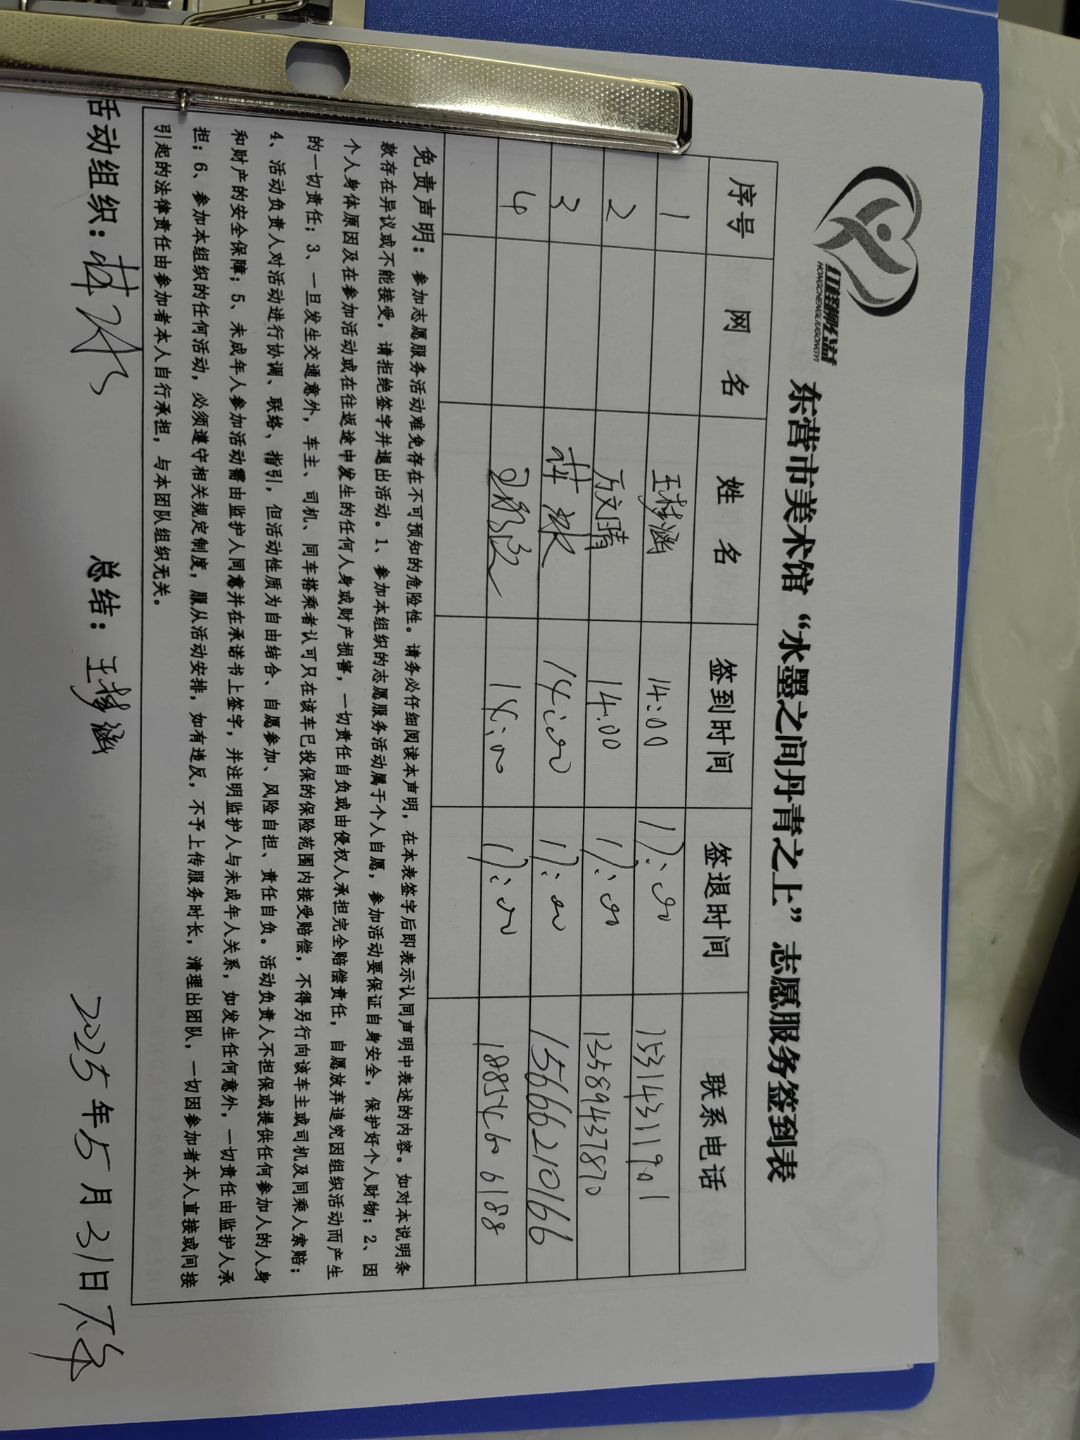 HONGCHENGLIUGONGYI
东营市美术馆“水墨之间丹青之上”志愿服务签到表
序号 网名 姓名 签到时间 签退时间 联系电话
1 王梦涵 14:00 17:00 15314311901
2 万文晴 14:00 17:00 13589437870
3 17:00 15666210166
4 14:00 17:00 18854606188
免责声明：参加志愿服务活动难免存在不可预知的危险性。请务必仔细阅读本声明，在本表签字后即表示认同声明中表述的内容。如对本说明条
款存在异议或不能接受，请拒绝签字并退出活动。1、参加本组织的志愿服务活动属于个人自愿，参加活动要保证自身安全，保护好个人财物；2、因
个人身体原因及在参加活动或在往返途中发生的任何人身或财产损害，一切责任自负或由侵权人承担完全赔偿责任，自愿放弃追究因组织活动而产生
的一切责任；3、一旦发生交通意外，车主、司机、同车搭乘者认可只在该车已投保的保险范围内接受赔偿，不得另行向该车主或司机及同乘人索赔；
4、活动负责人对活动进行协调、联络、指引，但活动性质为自由结合、自愿参加、风险自担、责任自负。活动负责人不担保或提供任何参加人的人身
和财产的安全保障；5、未成年人参加活动需由监护人同意并在承诺书上签字，并注明监护人与未成年人关系，如发生任何意外，一切责任由监护人承
担；6、参加本组织的任何活动，必须遵守相关规定制度，服从活动安排，如有违反，不予上传服务时长，清理出团队，一切因参加者本人直接或间接
引起的法律责任由参加者本人自行承担，与本团队组织无关。
活动组织： 总结：王梦涵 2025年5月31日下午